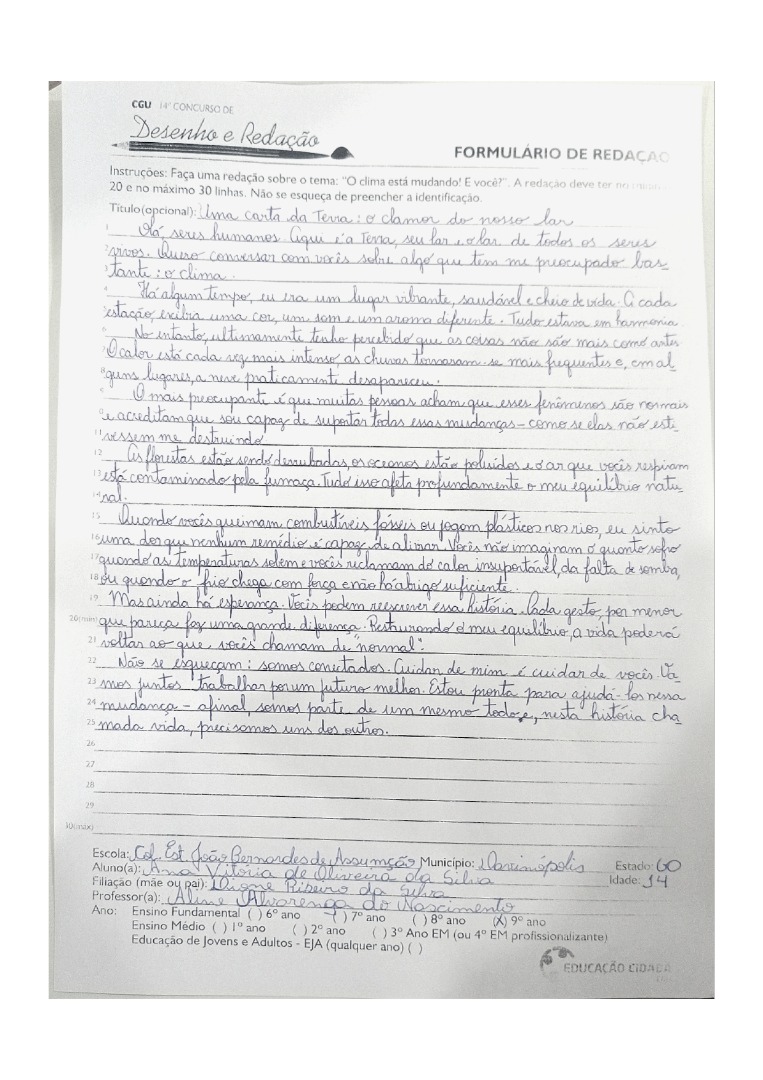 CGU 14º CONCURSO DE
Desenho e Redação
FORMULÁRIO DE REDAÇÃO
Instruções: Faça uma redação sobre o tema: "O clima está mudando! E você?". A redação deve ter no mínimo
20 e no máximo 30 linhas. Não se esqueça de preencher a identificação.
Título(opcional): Uma carta da Terra: o clamor do nosso lar
1 Olá seres humanos. Aqui é a Terra, seu lar e o lar de todos os seres
2 vivos. Quero conversar com vocês sobre algo que tem me preocupado bas-
3 tante: o clima.
4 Há algum tempo, eu era um lugar vibrante, saudável e cheio de vida. A cada
5 estação, exibia uma cor, um som e um aroma diferente. Tudo estava em harmonia.
6 No entanto, ultimamente tenho percebido que as coisas não são mais como antes.
7 O calor está cada vez mais intenso, as chuvas tornaram-se mais frequentes e, em al
8 guns lugares, a neve praticamente desapareceu.
9 O mais preocupante é que muitas pessoas acham que esses fenômenos são normais
10 e acreditam que sou capaz de suportar todas essas mudanças - como se elas não esti
11 vessem me destruindo
12 As florestas estão sendo derrubadas, os oceanos estão poluídos e o ar que vocês respiram
13 está contaminado pela fumaça. Tudo isso afeta profundamente o meu equilíbrio natu
14 ral.
15 Quando vocês queimam combustíveis fósseis ou jogam plásticos nos rios, eu sinto
16 uma dor que nenhum remédio é capaz de aliviar. Vocês não imaginam o quanto sofro
17 quando as temperaturas sobem e vocês reclamam do calor insuportável, da falta de sombra,
18 ou quando o frio chega com força e não há abrigo suficiente.
19 Mas ainda há esperança. Vocês podem reescrever essa história. Cada gesto, por menor
20(min) que pareça faz uma grande diferença. Restaurando o meu equilíbrio, a vida poderá
21 voltar ao que vocês chamam de "normal".
22 Não se esqueçam: somos conectados. Cuidar de mim é cuidar de vocês. Va
23 mos juntos trabalhar por um futuro melhor. Estou pronta para ajudá-los nessa
24 mudança - afinal, somos parte de um mesmo todo e, nesta história cha
25 mada vida, precisamos uns dos outros.
26
27
28
29
30(max)
Escola: Col. Est. João Bernardes de Assumção Município: Davinópolis Estado: GO
Aluno(a): Ana Vitória de Oliveira da Silva Idade: 14
Filiação (mãe ou pai): Dione Ribeiro da Silva
Professor(a): Aline Alvarenga do Nascimento
Ano: Ensino Fundamental ( ) 6º ano ( ) 7º ano ( ) 8º ano (X) 9º ano
Ensino Médio ( ) 1º ano ( ) 2º ano ( ) 3º Ano EM (ou 4º EM profissionalizante)
Educação de Jovens e Adultos - EJA (qualquer ano) ( )
EDUCAÇÃO CIDADÃ